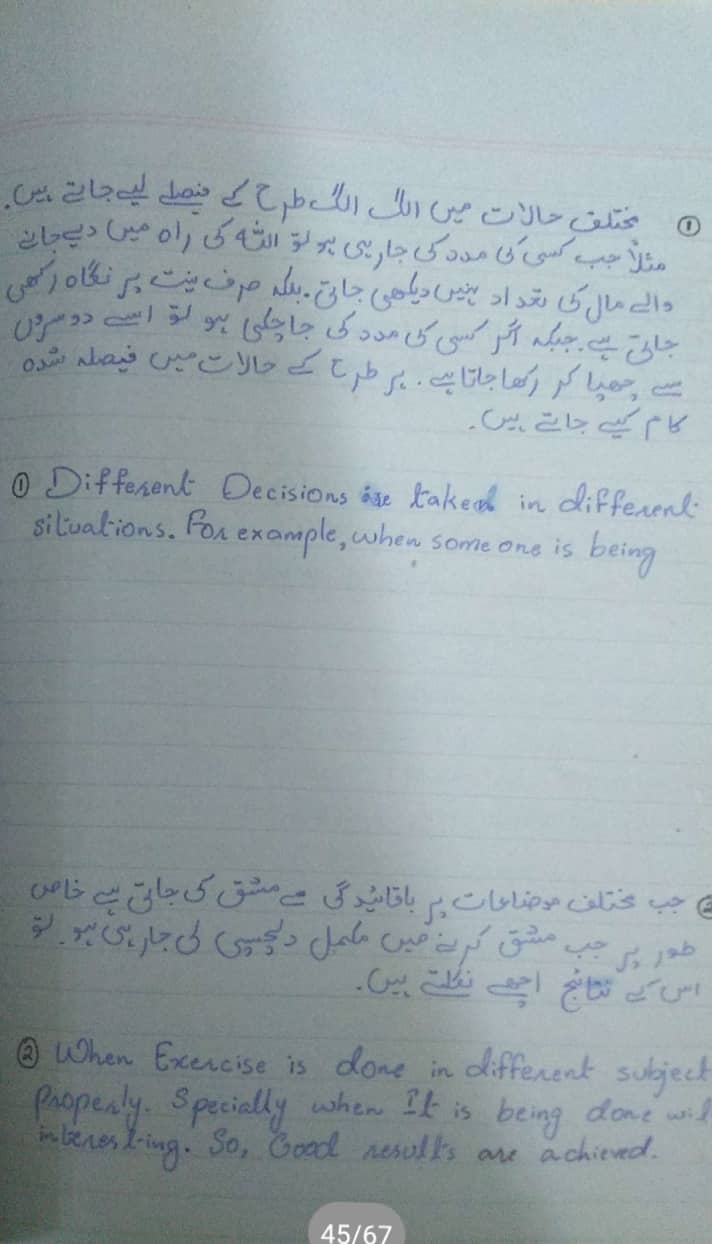 ① مختلف حالات میں الگ الگ طرح کے فیصلے لیے جاتے ہیں.
مثلاً جب کسی کی مدد کی جارہی ہو تو اللہ کی راہ میں دیے جانے
والے مال کی تعداد نہیں دیکھی جاتی. بلکہ صرف نیت پر نگاہ رکھی
جاتی ہے. جبکہ اگر کسی کی مدد کی جاچکی ہو تو اسے دوسروں
سے چھپا کر رکھا جاتا ہے. ہر طرح کے حالات میں فیصلہ شدہ
کام کیے جاتے ہیں.
① Different Decisions are taken in different
situations. For example, when some one is being
② جب مختلف موضاعات پر باقائیدگی سے مشق کی جاتی ہے خاص
طور پر جب مشق کرنے میں مکمل دلچسپی لی جارہی ہو. تو
اس کے نتائج اچھے نکلتے ہیں.
② When Exercise is done in different subject
Properly. Specially when It is being done wi
interesting. So, Good results are achieved.
45/67